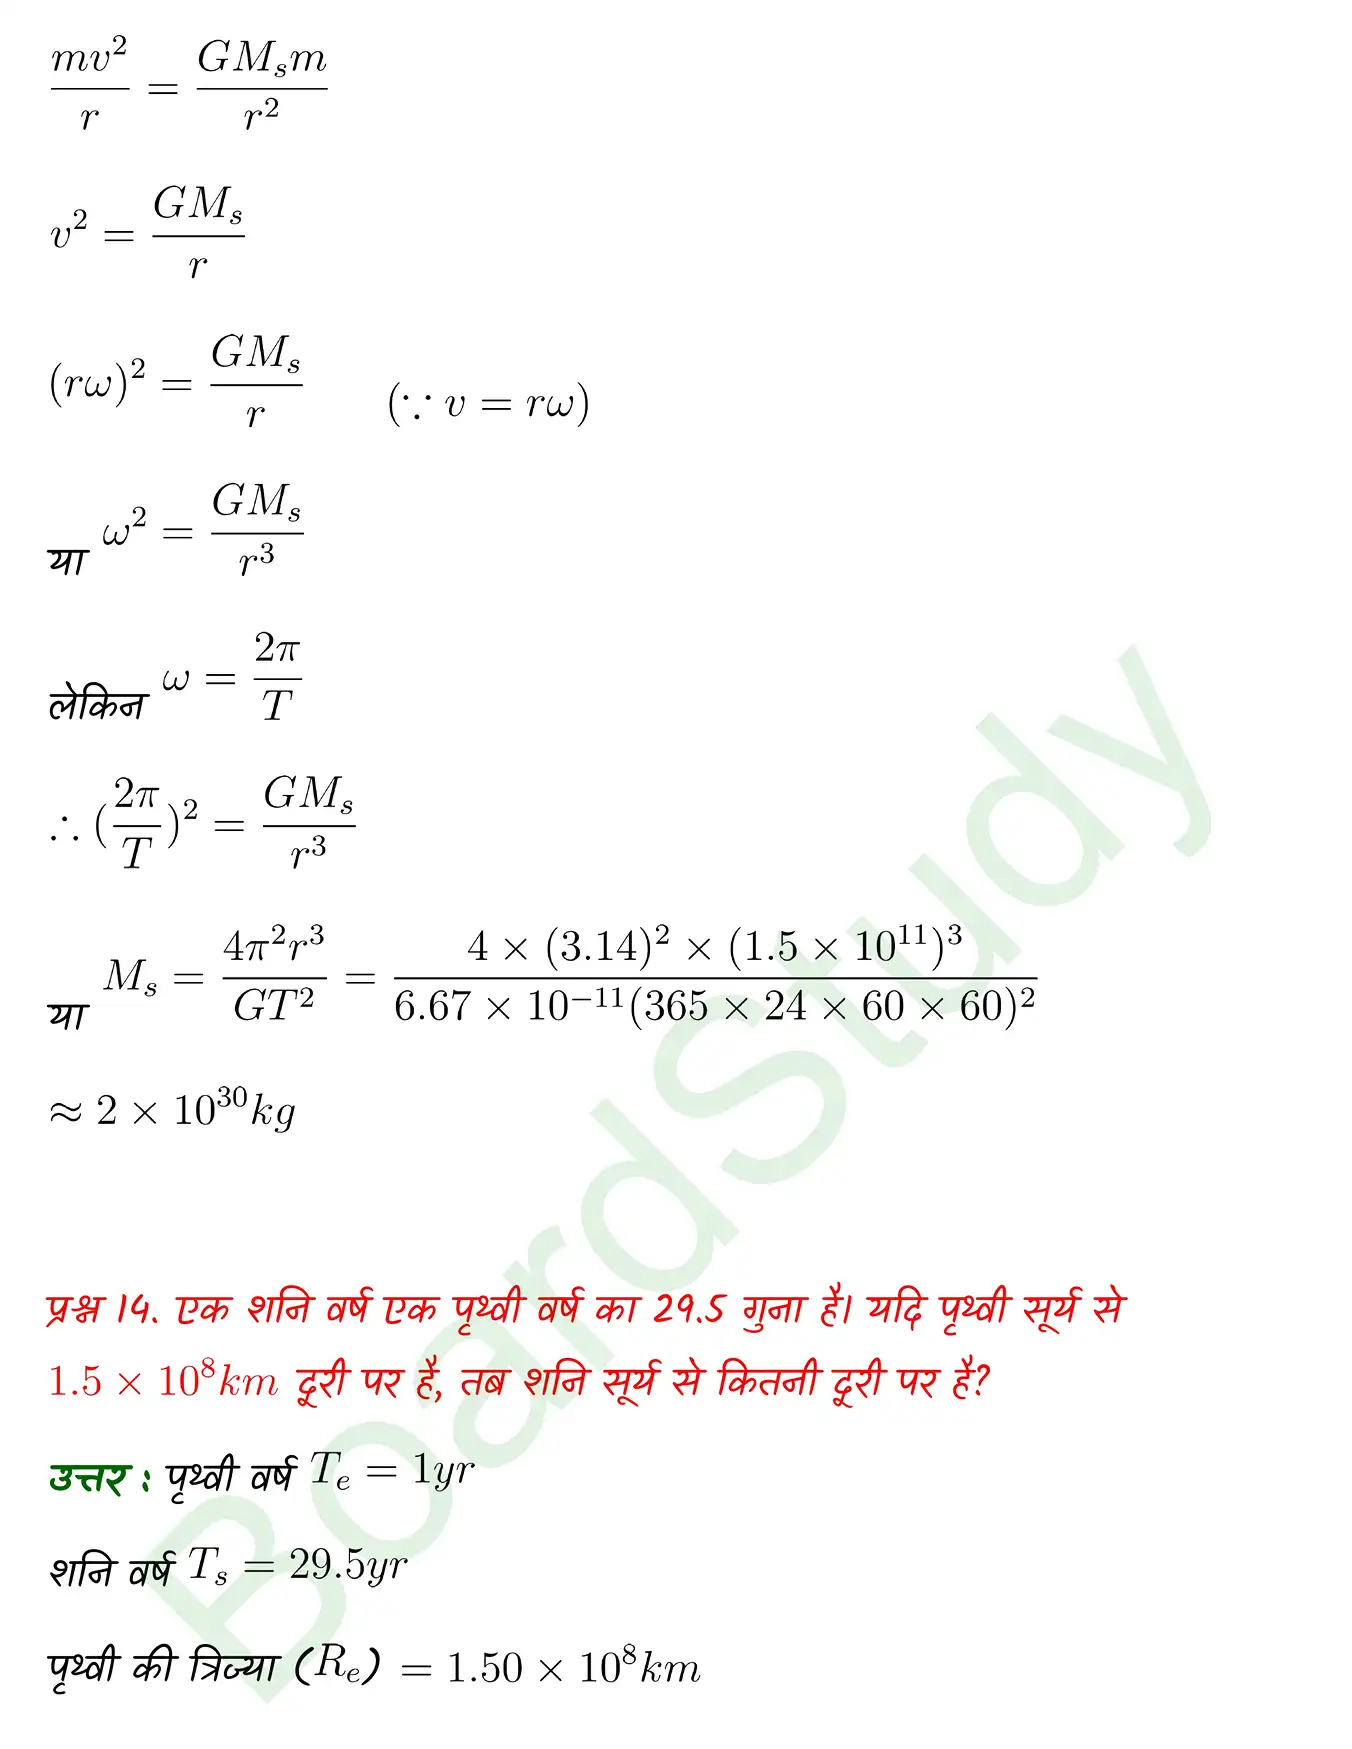 mv²/r = GMₛm/r²
v² = GMₛ/r
(rω)² = GMₛ/r (∵ v = rω)
या ω² = GMₛ/r³
लेकिन ω = 2π/T
∴ (2π/T)² = GMₛ/r³
या Mₛ = 4π²r³/GT² = 4 × (3.14)² × (1.5 × 10¹¹)³/6.67 × 10⁻¹¹(365 × 24 × 60 × 60)²
≈ 2 × 10³⁰kg
प्रश्न 14. एक शनि वर्ष एक पृथ्वी वर्ष का 29.5 गुना है। यदि पृथ्वी सूर्य से
1.5 × 10⁸km दूरी पर है, तब शनि सूर्य से कितनी दूरी पर है?
उत्तर : पृथ्वी वर्ष Tₑ = 1yr
शनि वर्ष Tₛ = 29.5yr
पृथ्वी की त्रिज्या (Rₑ) = 1.50 × 10⁸km
BoardStudy